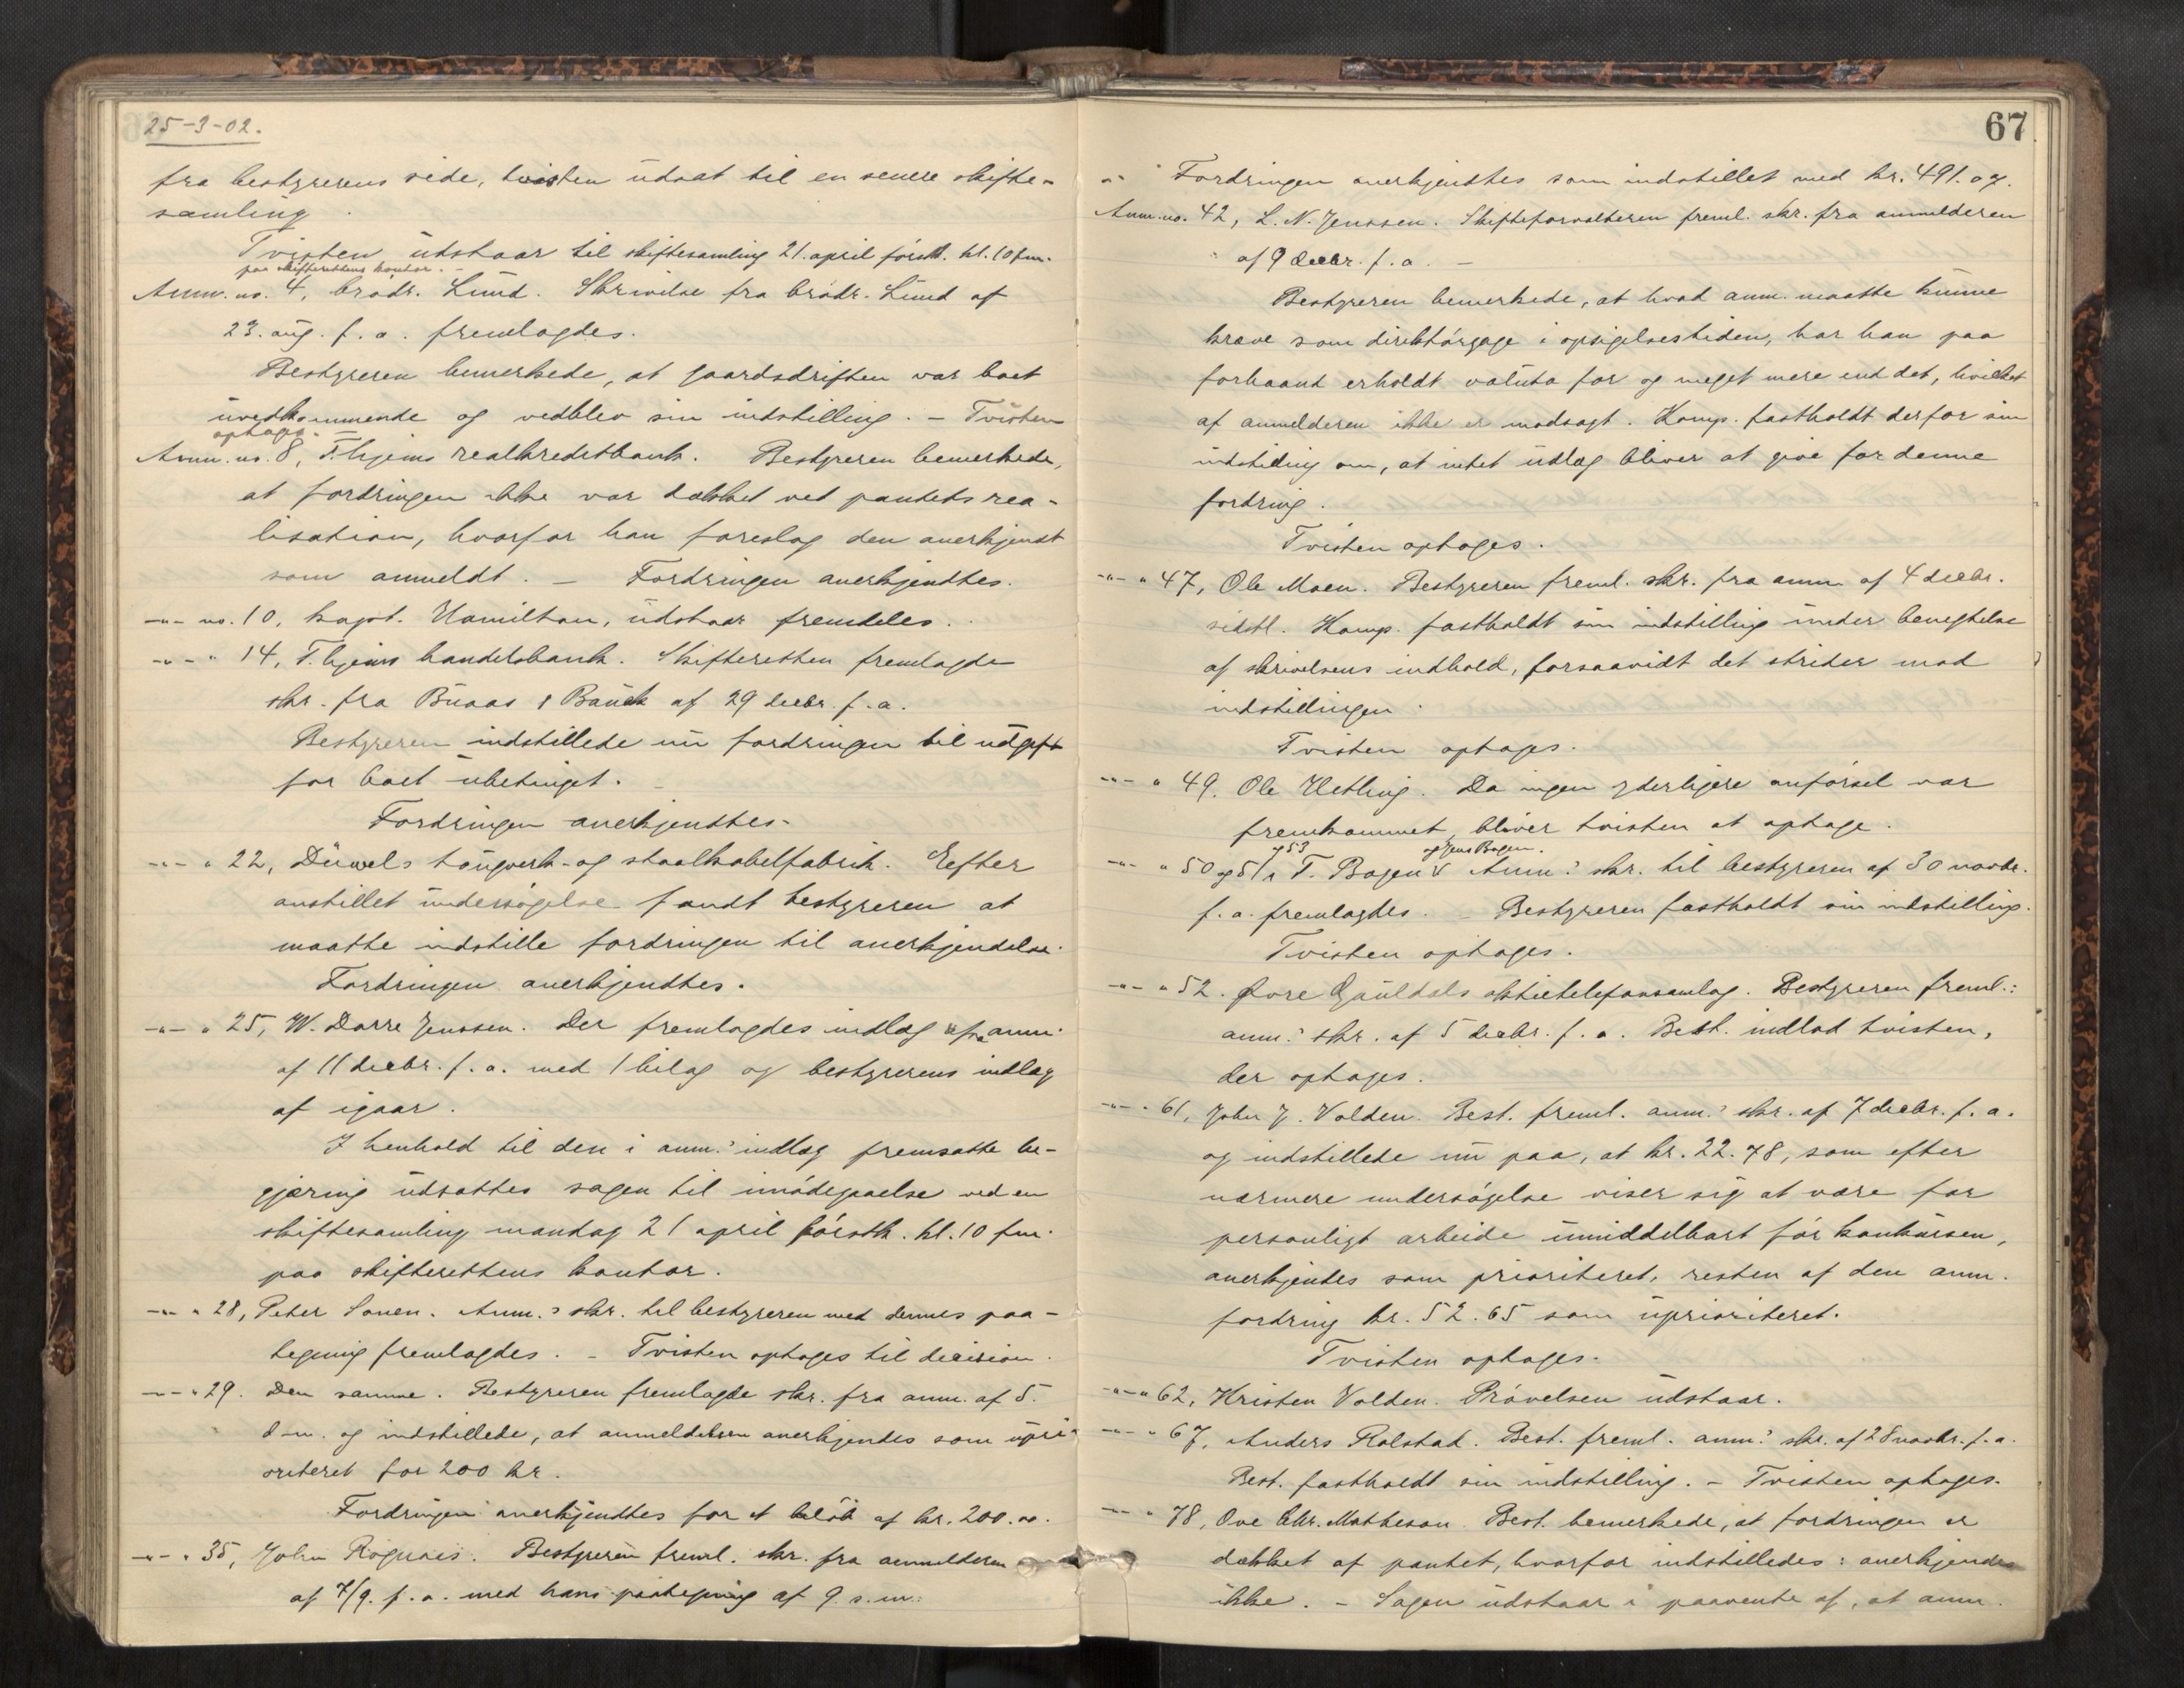 25-3-02.
fra bestyrerens side, tvisten udsat til en senere skifte-
samling.
Tvisten udstaar til skiftesamling 21. april førstk. kl. 10 fm.
paa skifterettens kontor. -
Anm. no. 4, brødr. Lund. Skrivelse fra brødr. Lund af
23. aug. f. a. fremlagdes.
Bestyreren bemerkede, at gaardsdriften var boet
uvedkommende og vedblev sin indstilling. - Tvisten
optages. -
Anm. no. 8, T.hjems realkreditbank. Bestyreren bemerkede,
at fordringen ikke var dækket ved pantets rea-
lisation, hvorfor han foreslog den anerkjendt
som anmeldt. - Fordringen anerkjendtes.
-"- no. 10, kapt. Hamilton, udstaar fremdeles.
-"- " 14, T.hjems handelsbank. Skifteretten fremlagde
skr. fra Buaas & Bauck af 29 decbr. f. a.
Bestyreren indstillede nu fordringen til udgift
for boet ubetinget. -
Fordringen anerkjendtes.
-"- " 22, Düwels taugverk- og staalkabelfabrik. Efter
anstillet undersøgelse fandt bestyreren at
maatte indstille fordringen til anerkjendelse.
Fordringen anerkjendtes.
-"- " 25, W. Darre Jenssen. Der fremlagdes indlæg fra anm.
af 11 decbr. f. a. med 1 bilag og bestyrerens indlæg
af igaar.
I henhold til den i anm.s indlæg fremsatte be-
gjæring udsattes sagen til imødegaaelse ved en
skiftesamling mandag 21 april førstk. kl. 10 fm.
paa skifterettens kontor.
-"- " 28, Peter Sonen. Anm.s skr. til bestyreren med dennes paa-
tegning fremlagdes. - Tvisten optages til decision.
-"- " 29. Den samme. Bestyreren fremlagde skr. fra anm. af 5.
d.m. og indstillede, at anmeldelsen anerkjendes som upri-
oriteret for 200 kr.
Fordringen anerkjendtes for et beløb af kr. 200.00.
-"- " 35, John Rognæs. Bestyreren freml. skr. fra anmelderen
af 7/9. f. a. med hans paategning af 9. s. m.
67
Fordringen anerkjendtes som indstillet med kr. 491.07.
Anm. no. 42, L. N. Jenssen. Skifteforvalteren freml. skr. fra anmelderen
af 9 decbr. f. a. -
Bestyreren bemerkede, at hvad anm. maatte kunne
kræve som direktørgage i opsigelsestiden, har han paa
forhaand erholdt valuta for og meget mere end det, hvilket
af anmelderen ikke er modsagt. Komp. fastholdt derfor sin
indstilling om, at intet udlæg bliver at give for denne
fordring.
Tvisten optages.
-"- " 47, Ole Moen. Bestyreren freml. skr. fra anm. af 4 decbr.
sidstl. Komp. fastholdt sin indstilling under benegtelse
af skrivelsens indhold, forsaavidt det strider mod
indstillingen.
Tvisten optages.
-"- " 49. Ole Uetling. Da ingen yderligere anførsel var
fremkommet, bliver tvisten at optage.
og 53 og Jens Bogen.
-"- " 50 og 51, T. Bogen V Anm.s skr. til bestyreren af 30 novbr.
f. a. fremlagdes. - Bestyreren fastholdt sin indstilling.
Tvisten optages.
-"- " 52. Øvre Gauldals aktietelefonsamlag. Bestyreren freml.:
anm.s skr. af 5 decbr. f. a. Best. indlod tvisten,
der optages.
-"- " 61, John J. Volden. Best. freml. anm.s skr. af 7 decbr. f. a.
og indstillede nu paa, at kr. 22.78, som efter
nærmere undersøgelse viser sig at være for
personligt arbeide umiddelbart før konkursen,
anerkjendes som prioriteret, resten af den anm.
fordring kr. 52.65 som uprioriteret.
Tvisten optages.
-"- " 62, Kristen Volden. Prøvelsen udstaar.
-"- " 67, Anders Rolstad. Best. freml. anm.s skr. af 28 novbr. f. a.
Best. fastholdt sin indstilling. - Tvisten optages.
-"- " 78, Ove Chr. Matheson. Best. bemerkede, at fordringen er
dækket af pantet, hvorfor indstilledes: anerkjendes
ikke. - Sagen udstaar i paavente af, at anm.